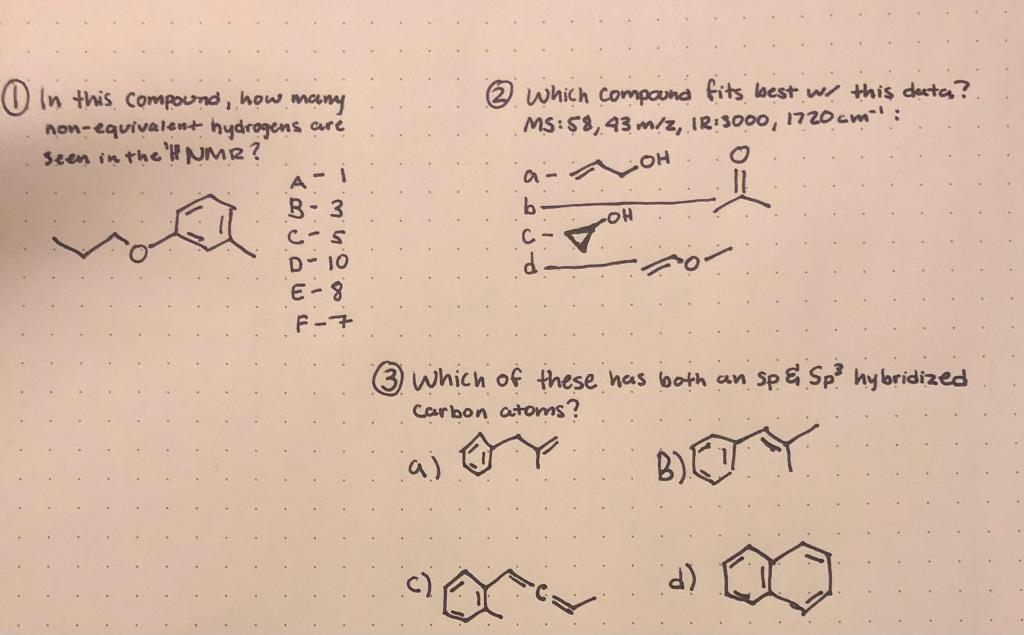 ① In this compound, how many
non-equivalent hydrogens are
seen in the ¹H NMR?
A - 1
B - 3
C - 5
D - 10
E - 8
F - 7
O
② Which compound fits best w/ this data?
MS: 58, 43 m/z, IR: 3000, 1720 cm⁻¹ :
a - OH
b O
c - OH
d O
③ Which of these has both an sp & sp³ hybridized
carbon atoms?
a)
B)
c) C
d)